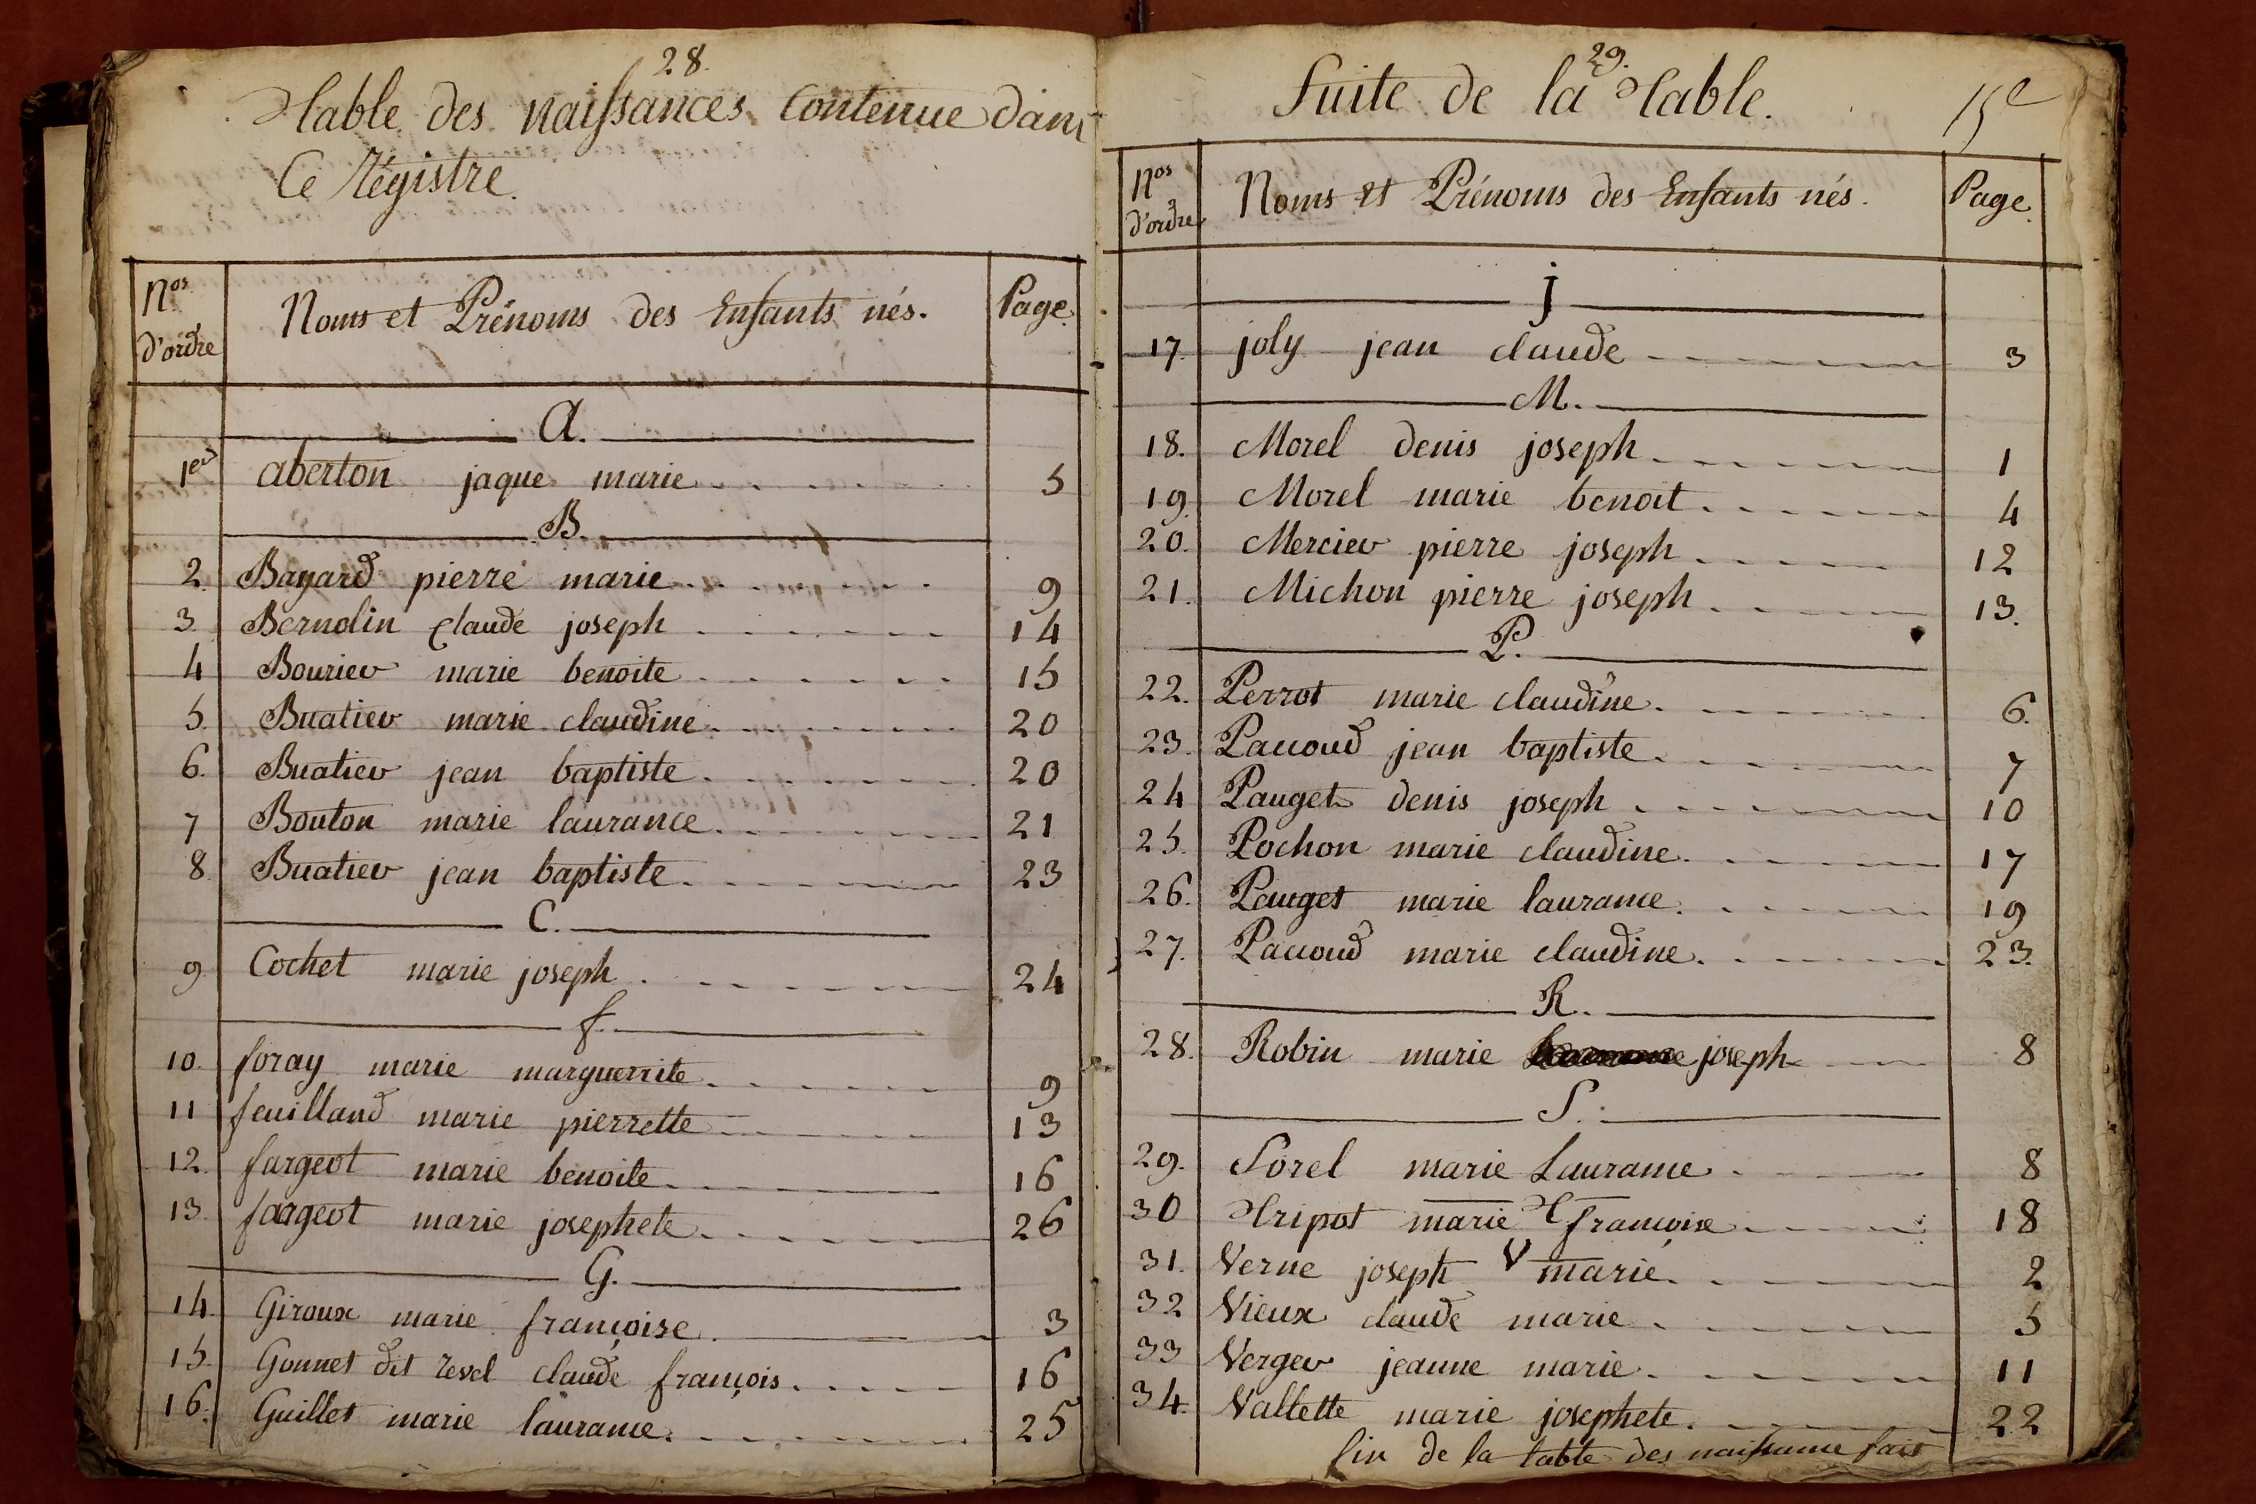 28.
Table des naissances Contenue dans
Ce Régistre.
Nos
d'ordre
Noms et Prénoms des Enfants nés.
Page.
A.
1er aberton jaque marie 5
B.
2. Bayard pierre marie 9
3. Bernolin claude joseph 14
4 Bourier marie benoite 15
5. Buatier marie claudine 20
6. Buatier jean baptiste 20
7 Bouton marie laurance 21
8 Buatier jean baptiste 23
C.
9 Cochet marie joseph 24
f.
10. foray marie marguerrite 9
11 feuilland marie pierrette 13
12. fargeot marie benoite 16
13. fargeot marie josephete 26
G.
14. Giroux marie françoise 3
15. Gonnet dit revel claude françois 16
16. Guillet marie laurance 25
29.
Suite de la Table.
15e
Nos
d'ordre
Noms et Prénoms des Enfants nés.
Page.
j
17. joly jean claude 3
M.
18. Morel denis joseph 1
19. Morel marie benoit 4
20. Mercier pierre joseph 12
21. Michon pierre joseph 13.
P.
22. Perrot marie claudine 6.
23. Pauoud jean baptiste 7
24 Pauget denis joseph 10
25. Pochon marie claudine 17
26. Pauget marie laurance 19
27. Pauoud marie claudine 23.
R.
28. Robin marie joseph 8
S.
29. Sorel marie Laurance 8
T
30 Tripot marie françoise 18
V
31. Verne joseph marie 2
32 Vieux claude marie 5
33 Verger jeanne marie 11
34. Vallette marie josephete 22
fin de la table des naissance fait